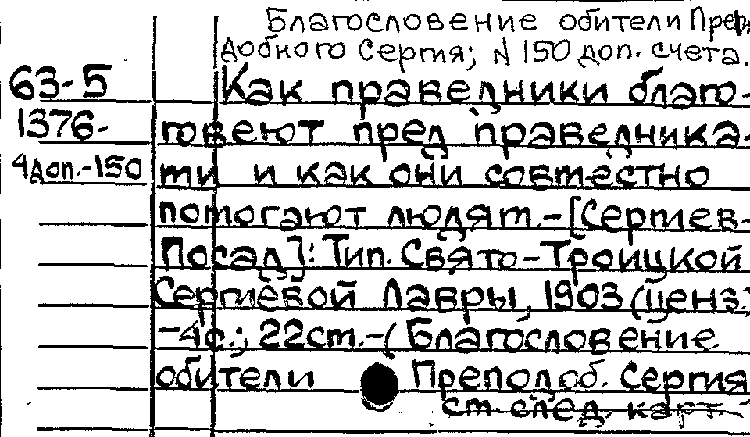 Благословение обители Преп
добного Сергия; N 150 доп. счета.
63-5 Как праведники благо-
1376- говеют пред праведника-
4 доп.-150 ми и как они совместно
помогают людям.-[Сергиев-
Посад]: Тип. Свято-Троицкой
Сергиевой Лавры, 1903 (ценз.)
-4с.; 22см.-(Благословение
обители Преподоб. Сергия
см след. карт.